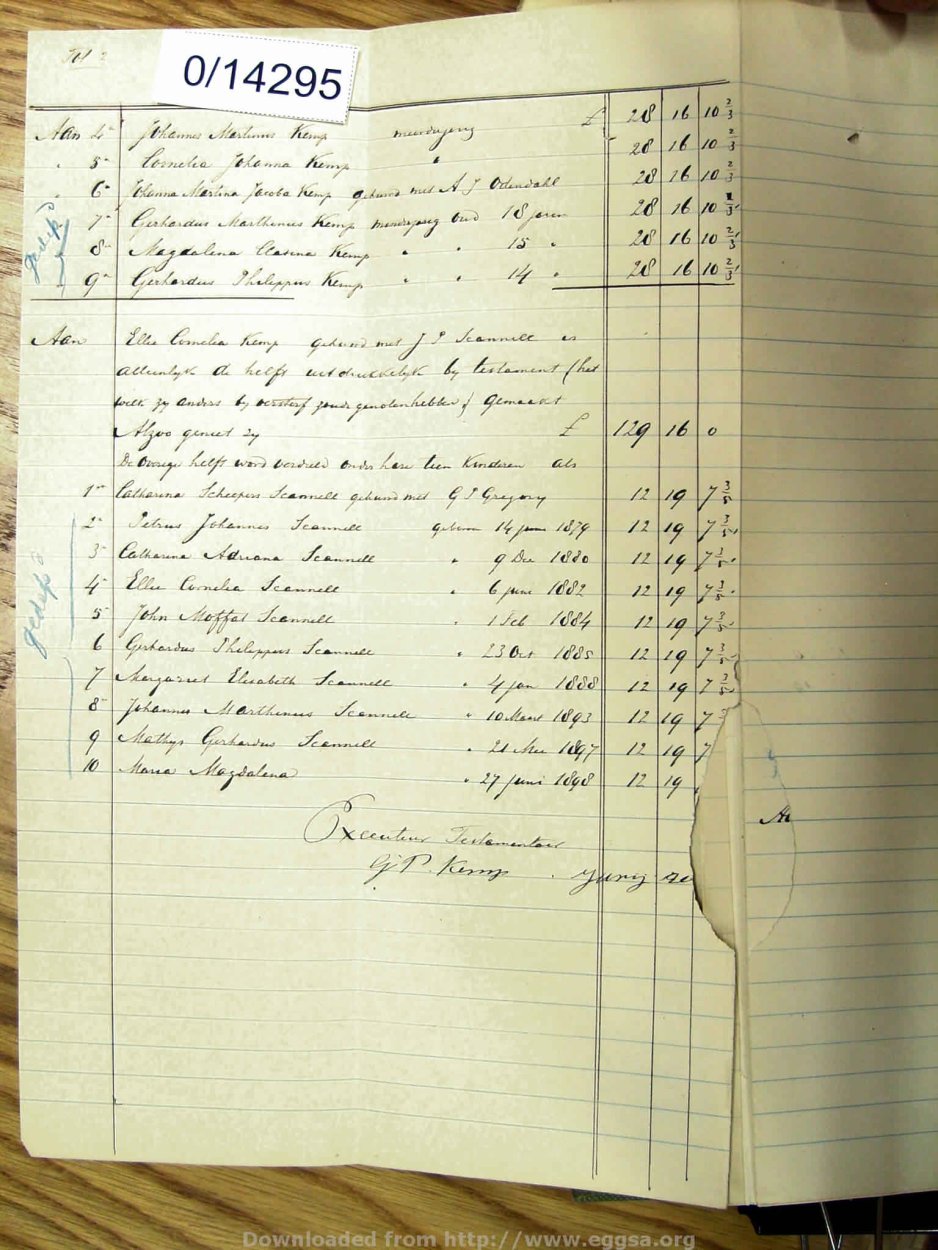 Fol 2
0/14295
Aan 4e Johannes Martinus Kemp meerderjarig £ 28 16 10 2/3
" 5e Cornelia Johanna Kemp " 28 16 10 2/3
" 6e Johanna Martina Jacoba Kemp gehuwd met A J Odendahl 28 16 10 2/3
7e Gerhardus Marthinus Kemp minderjarig oud 18 jaren 28 16 10 2/3
8e Magdalena Clasina Kemp " " 15 " 28 16 10 2/3
9e Gerhardus Philippus Kemp " " 14 " 28 16 10 2/3
gedep
Aan Ellie Cornelia Kemp gehuwd met J P Scannell is
alleenlyk de helft uitdrukkelyk by testament (het
welk zy anders by versterf zoude genoten hebben) gemaakt
Alzoo geniet zy £ 129 16 0
De Overige helft word verdeeld onder hare tien Kinderen als
1e Catharina Scheepers Scannell gehuwd met G J Gregory 12 19 7 3/5
2e Petrus Johannes Scannell geboren 14 1879 12 19 7 3/5
3e Catharina Adriana Scannell " 9 Dec 1880 12 19 7 3/5
4e Ellie Cornelia Scannell " 6 juni 1882 12 19 7 3/5
5 John Moffat Scannell " 1 Feb 1884 12 19 7 3/5
6 Gerhardus Philippus Scannell " 23 Oct 1885 12 19 7 3/5
7 Margaret Elisabeth Scannell " 4 jan 1888 12 19 7 3/5
8 Johannes Marthinus Scannell " 10 Maart 1893 12 19 7 3
9 Mathys Gerhardus Scannell " 21 Mei 1897 12 19 7
10 Maria Magdalena " 27 juni 1898 12 19
gedep
Executeur Testamentair
G P. Kemp
Downloaded from http://www.eggsa.org